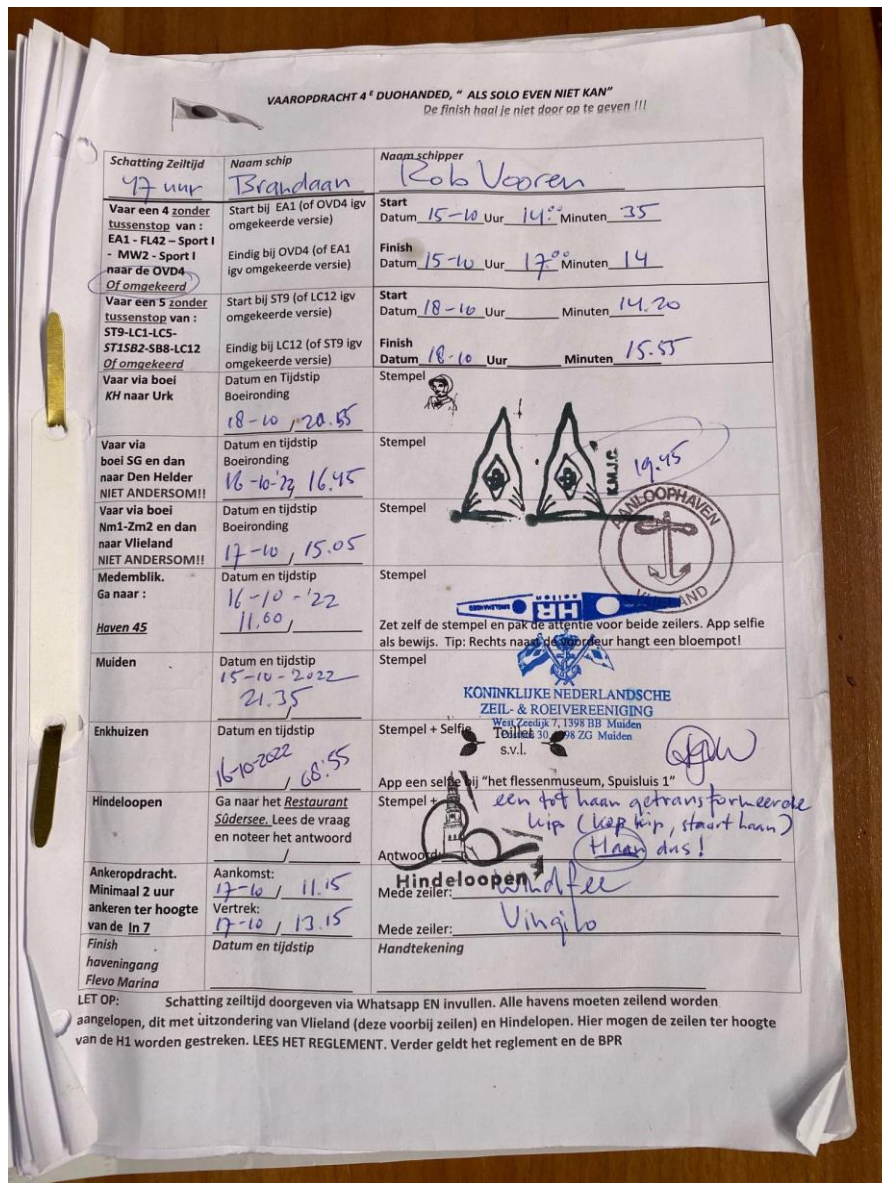 VAAROPDRACHT 4ᴱ DUOHANDED, " ALS SOLO EVEN NIET KAN"
De finish haal je niet door op te geven !!!
Schatting Zeiltijd
47 uur
Naam schip
Brandaan
Naam schipper
Rob Vooren
Vaar een 4 zonder
tussenstop van :
EA1 - FL42 – Sport I
- MW2 - Sport I
naar de OVD4
Of omgekeerd
Start bij EA1 (of OVD4 igv
omgekeerde versie)
Eindig bij OVD4 (of EA1
igv omgekeerde versie)
Start
Datum 15-10 Uur 14:00 Minuten 35
Finish
Datum 15-10 Uur 17:00 Minuten 14
Vaar een 5 zonder
tussenstop van :
ST9-LC1-LC5-
ST1SB2-SB8-LC12
Of omgekeerd
Start bij ST9 (of LC12 igv
omgekeerde versie)
Eindig bij LC12 (of ST9 igv
omgekeerde versie)
Start
Datum 18-10 Uur Minuten 14.20
Finish
Datum 18-10 Uur Minuten 15.55
Vaar via boei
KH naar Urk
Datum en Tijdstip
Boeironding
18-10 / 20.55
Stempel
Vaar via
boei SG en dan
naar Den Helder
NIET ANDERSOM!!
Datum en tijdstip
Boeironding
16-10-'22 16.45
Stempel
K.M.J.C.
19.45
Vaar via boei
Nm1-Zm2 en dan
naar Vlieland
NIET ANDERSOM!!
Datum en tijdstip
Boeironding
17-10 / 15.05
Stempel
AANLOOPHAVEN
VLIELAND
Medemblik.
Ga naar :
Haven 45
Datum en tijdstip
16-10-'22
11.60 /
Stempel
HR
Zet zelf de stempel en pak de attentie voor beide zeilers. App selfie
als bewijs. Tip: Rechts naast de voordeur hangt een bloempot!
Muiden
Datum en tijdstip
15-10-2022
21.35
Stempel
KONINKLIJKE NEDERLANDSCHE
ZEIL- & ROEIVEREENIGING
West Zeedijk 7, 1398 BB Muiden
30, 1398 ZG Muiden
Enkhuizen
Datum en tijdstip
16-10-2022
/ 08:55
Stempel + Selfie
s.v.l.
App een selfie bij "het flessenmuseum, Spuisluis 1"
Hindeloopen
Ga naar het Restaurant
Sûdersee. Lees de vraag
en noteer het antwoord
/
Stempel +
een tot haan getransformeerde
kip (kop kip, staart haan)
Haan dus!
Antwoord:
Hindeloopen
Ankeropdracht.
Minimaal 2 uur
ankeren ter hoogte
van de In 7
Aankomst:
17-10 / 11.15
Vertrek:
17-10 / 13.15
Mede zeiler: Windfee
Mede zeiler: Vingilo
Finish
haveningang
Flevo Marina
Datum en tijdstip
Handtekening
LET OP: Schatting zeiltijd doorgeven via Whatsapp EN invullen. Alle havens moeten zeilend worden
aangelopen, dit met uitzondering van Vlieland (deze voorbij zeilen) en Hindelopen. Hier mogen de zeilen ter hoogte
van de H1 worden gestreken. LEES HET REGLEMENT. Verder geldt het reglement en de BPR